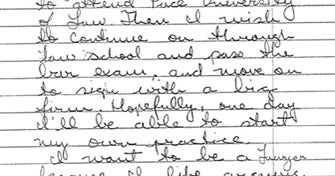 to attend Pace University
of Law. Then I wish
to continue on through
law school and pass the
bar exam, and move on
to sign with a big
firm. Hopefully, one day
I'll be able to start
my own practice.
I want to be a Lawyer
because I like arguing